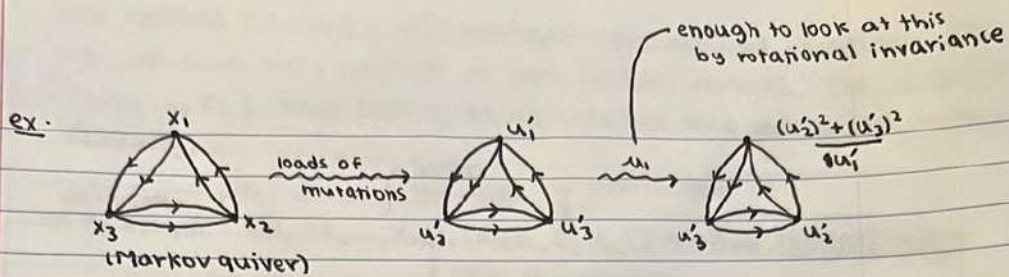 enough to look at this
by rotational invariance
ex.
x₁
x₃
x₂
(Markov quiver)
loads of
mutations
u₁'
u₂'
u₃'
μ₁
(u₂')² + (u₃')²
u₁'
u₃'
u₂'